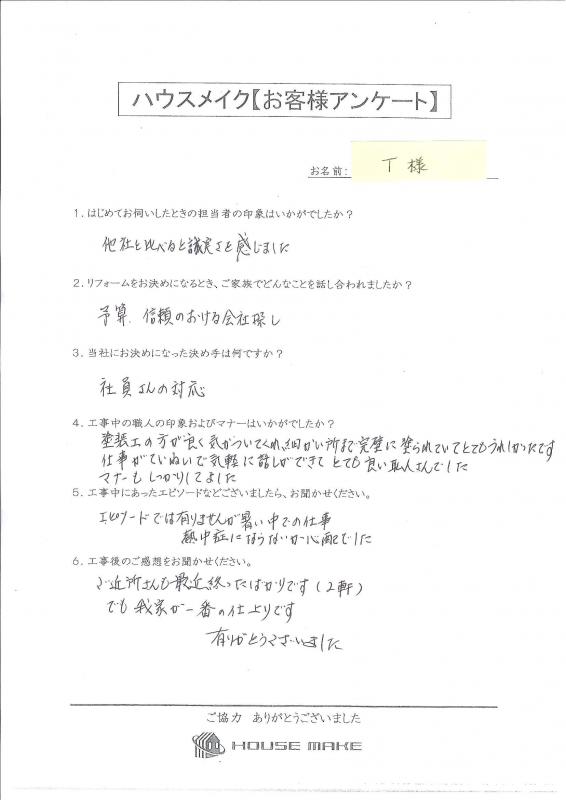 ハウスメイク【お客様アンケート】
お名前: T 様
1. はじめてお伺いしたときの担当者の印象はいかがでしたか?
他社と比べると誠実さを感じました
2. リフォームをお決めになるとき、ご家族でどんなことを話し合われましたか?
予算、信頼のおける会社探し
3. 当社にお決めになった決め手は何ですか?
社員さんの対応
4. 工事中の職人の印象およびマナーはいかがでしたか?
塗装工の方が良く気がついてくれ、細かい所まで完璧に塗られていてとてもうれしかったです
仕事がていねいで気軽に話しができて とても良い職人さんでした
マナーもしっかりしてました
5. 工事中にあったエピソードなどございましたら、お聞かせください。
エピソードでは有りませんが暑い中での仕事
熱中症にならないか心配でした
6. 工事後のご感想をお聞かせください。
ご近所さんも最近終ったばかりです(2軒)
でも我家が一番の仕上りです
有りがとうございました
ご協力 ありがとうございました
HOUSE MAKE